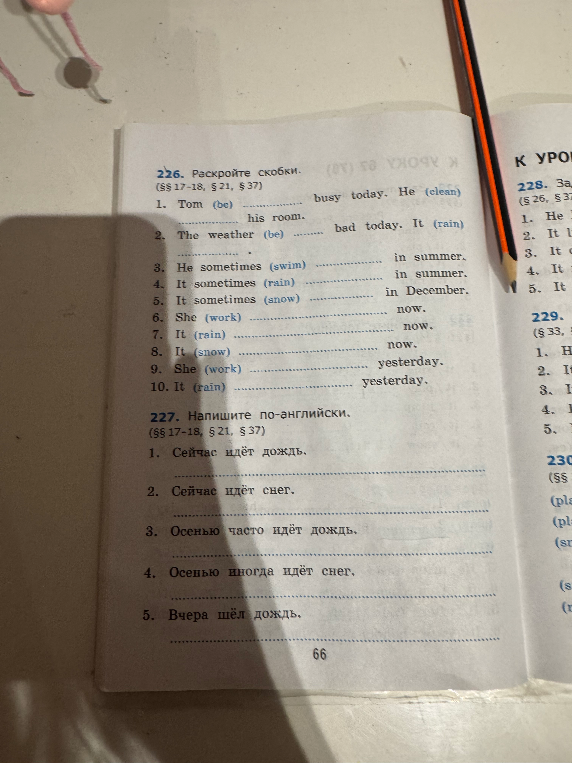 226. Раскройте скобки.
(§§ 17–18, § 21, § 37)
1. Tom (be) .................. busy today. He (clean)
.................. his room.
2. The weather (be) ......... bad today. It (rain)
.................. .
3. He sometimes (swim) .................. in summer.
4. It sometimes (rain) .................. in summer.
5. It sometimes (snow) .................. in December.
6. She (work) .................................... now.
7. It (rain) .................................... now.
8. It (snow) .................................... now.
9. She (work) ............................... yesterday.
10. It (rain) ............................... yesterday.
227. Напишите по-английски.
(§§ 17–18, § 21, § 37)
1. Сейчас идёт дождь.
2. Сейчас идёт снег.
3. Осенью часто идёт дождь.
4. Осенью иногда идёт снег.
5. Вчера шёл дождь.
66
К УРО
228. За
(§ 26, § 37
1. He
2. It
3. It
4. It
5. It
229.
(§ 33,
1. H
2. It
3. I
4.
5.
230
(§§
(pla
(pla
(s